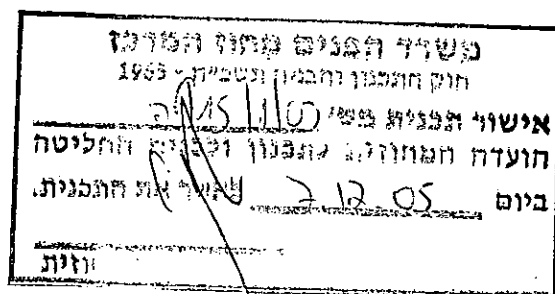 משרד הפנים מחוז המרכז
חוק התכנון והבניה תשכ״ה - 1965
אישור תכנית מס׳
הועדה המחוזית לתכנון ולבניה החליטה
ביום 7.12.05 לאשר את התכנית.
וזית